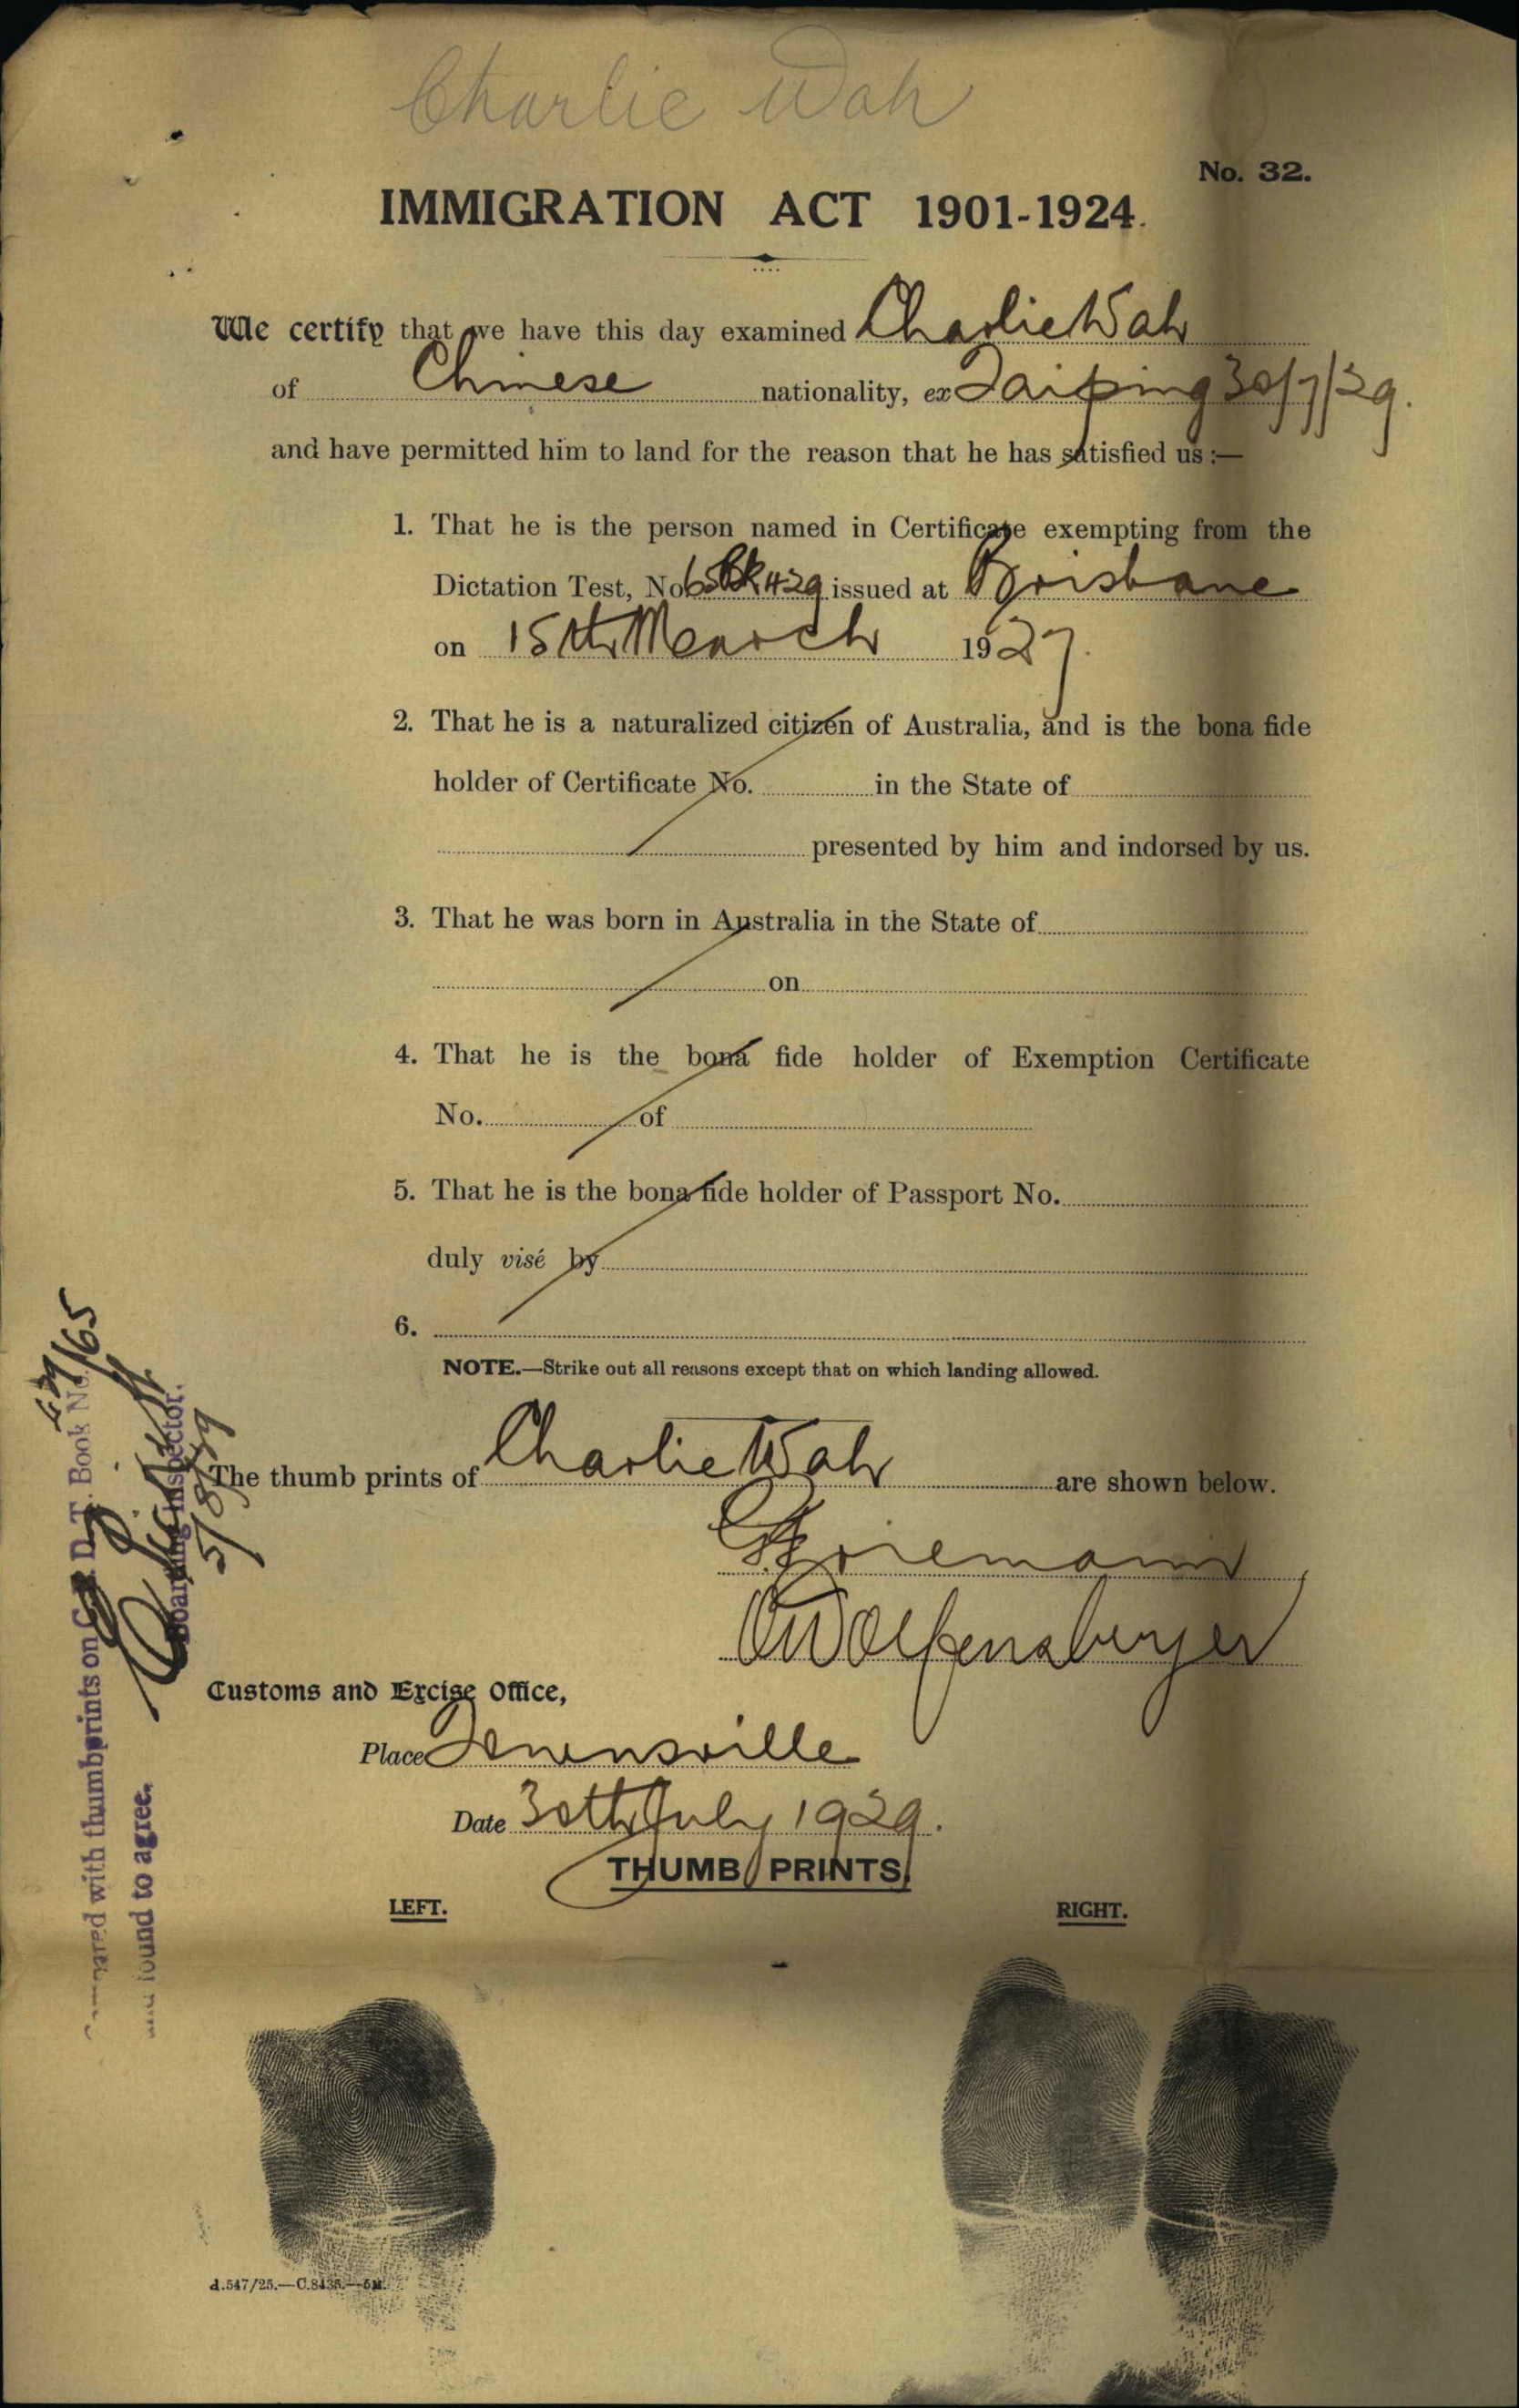 Charlie Wah
No. 32.
IMMIGRATION ACT 1901-1924.
We certify that we have this day examined Charlie Wah
of Chinese nationality, ex Taiping 30/7/29.
and have permitted him to land for the reason that he has satisfied us:—
1. That he is the person named in Certificate exempting from the
Dictation Test, No 65 Bk 429 issued at Brisbane
on 15th March 1927.
2. That he is a naturalized citizen of Australia, and is the bona fide
holder of Certificate No. in the State of
presented by him and indorsed by us.
3. That he was born in Australia in the State of
on
4. That he is the bona fide holder of Exemption Certificate
No. of
5. That he is the bona fide holder of Passport No.
duly visé by
6.
NOTE.—Strike out all reasons except that on which landing allowed.
The thumb prints of Charlie Wah are shown below.
Wolfensberger
Customs and Excise Office,
Place Townsville
Date 30th July 1929.
THUMB PRINTS
LEFT. RIGHT.
d.547/25.—C.8435.—5M.
Compared with thumbprints on C.E.D.T. Book No. 429/65
and found to agree.
Boarding Inspector.
5/8/29